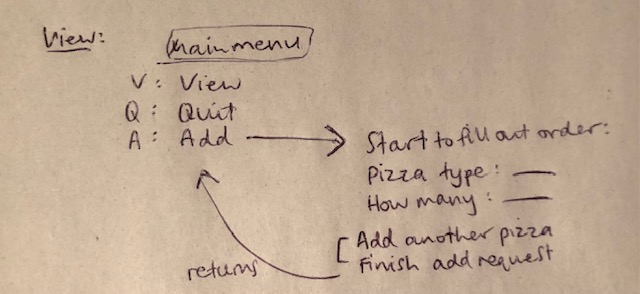 View:
main menu
V: View
Q: Quit
A: Add
Start to fill out order:
Pizza type:
How many:
Add another pizza
Finish add request
returns